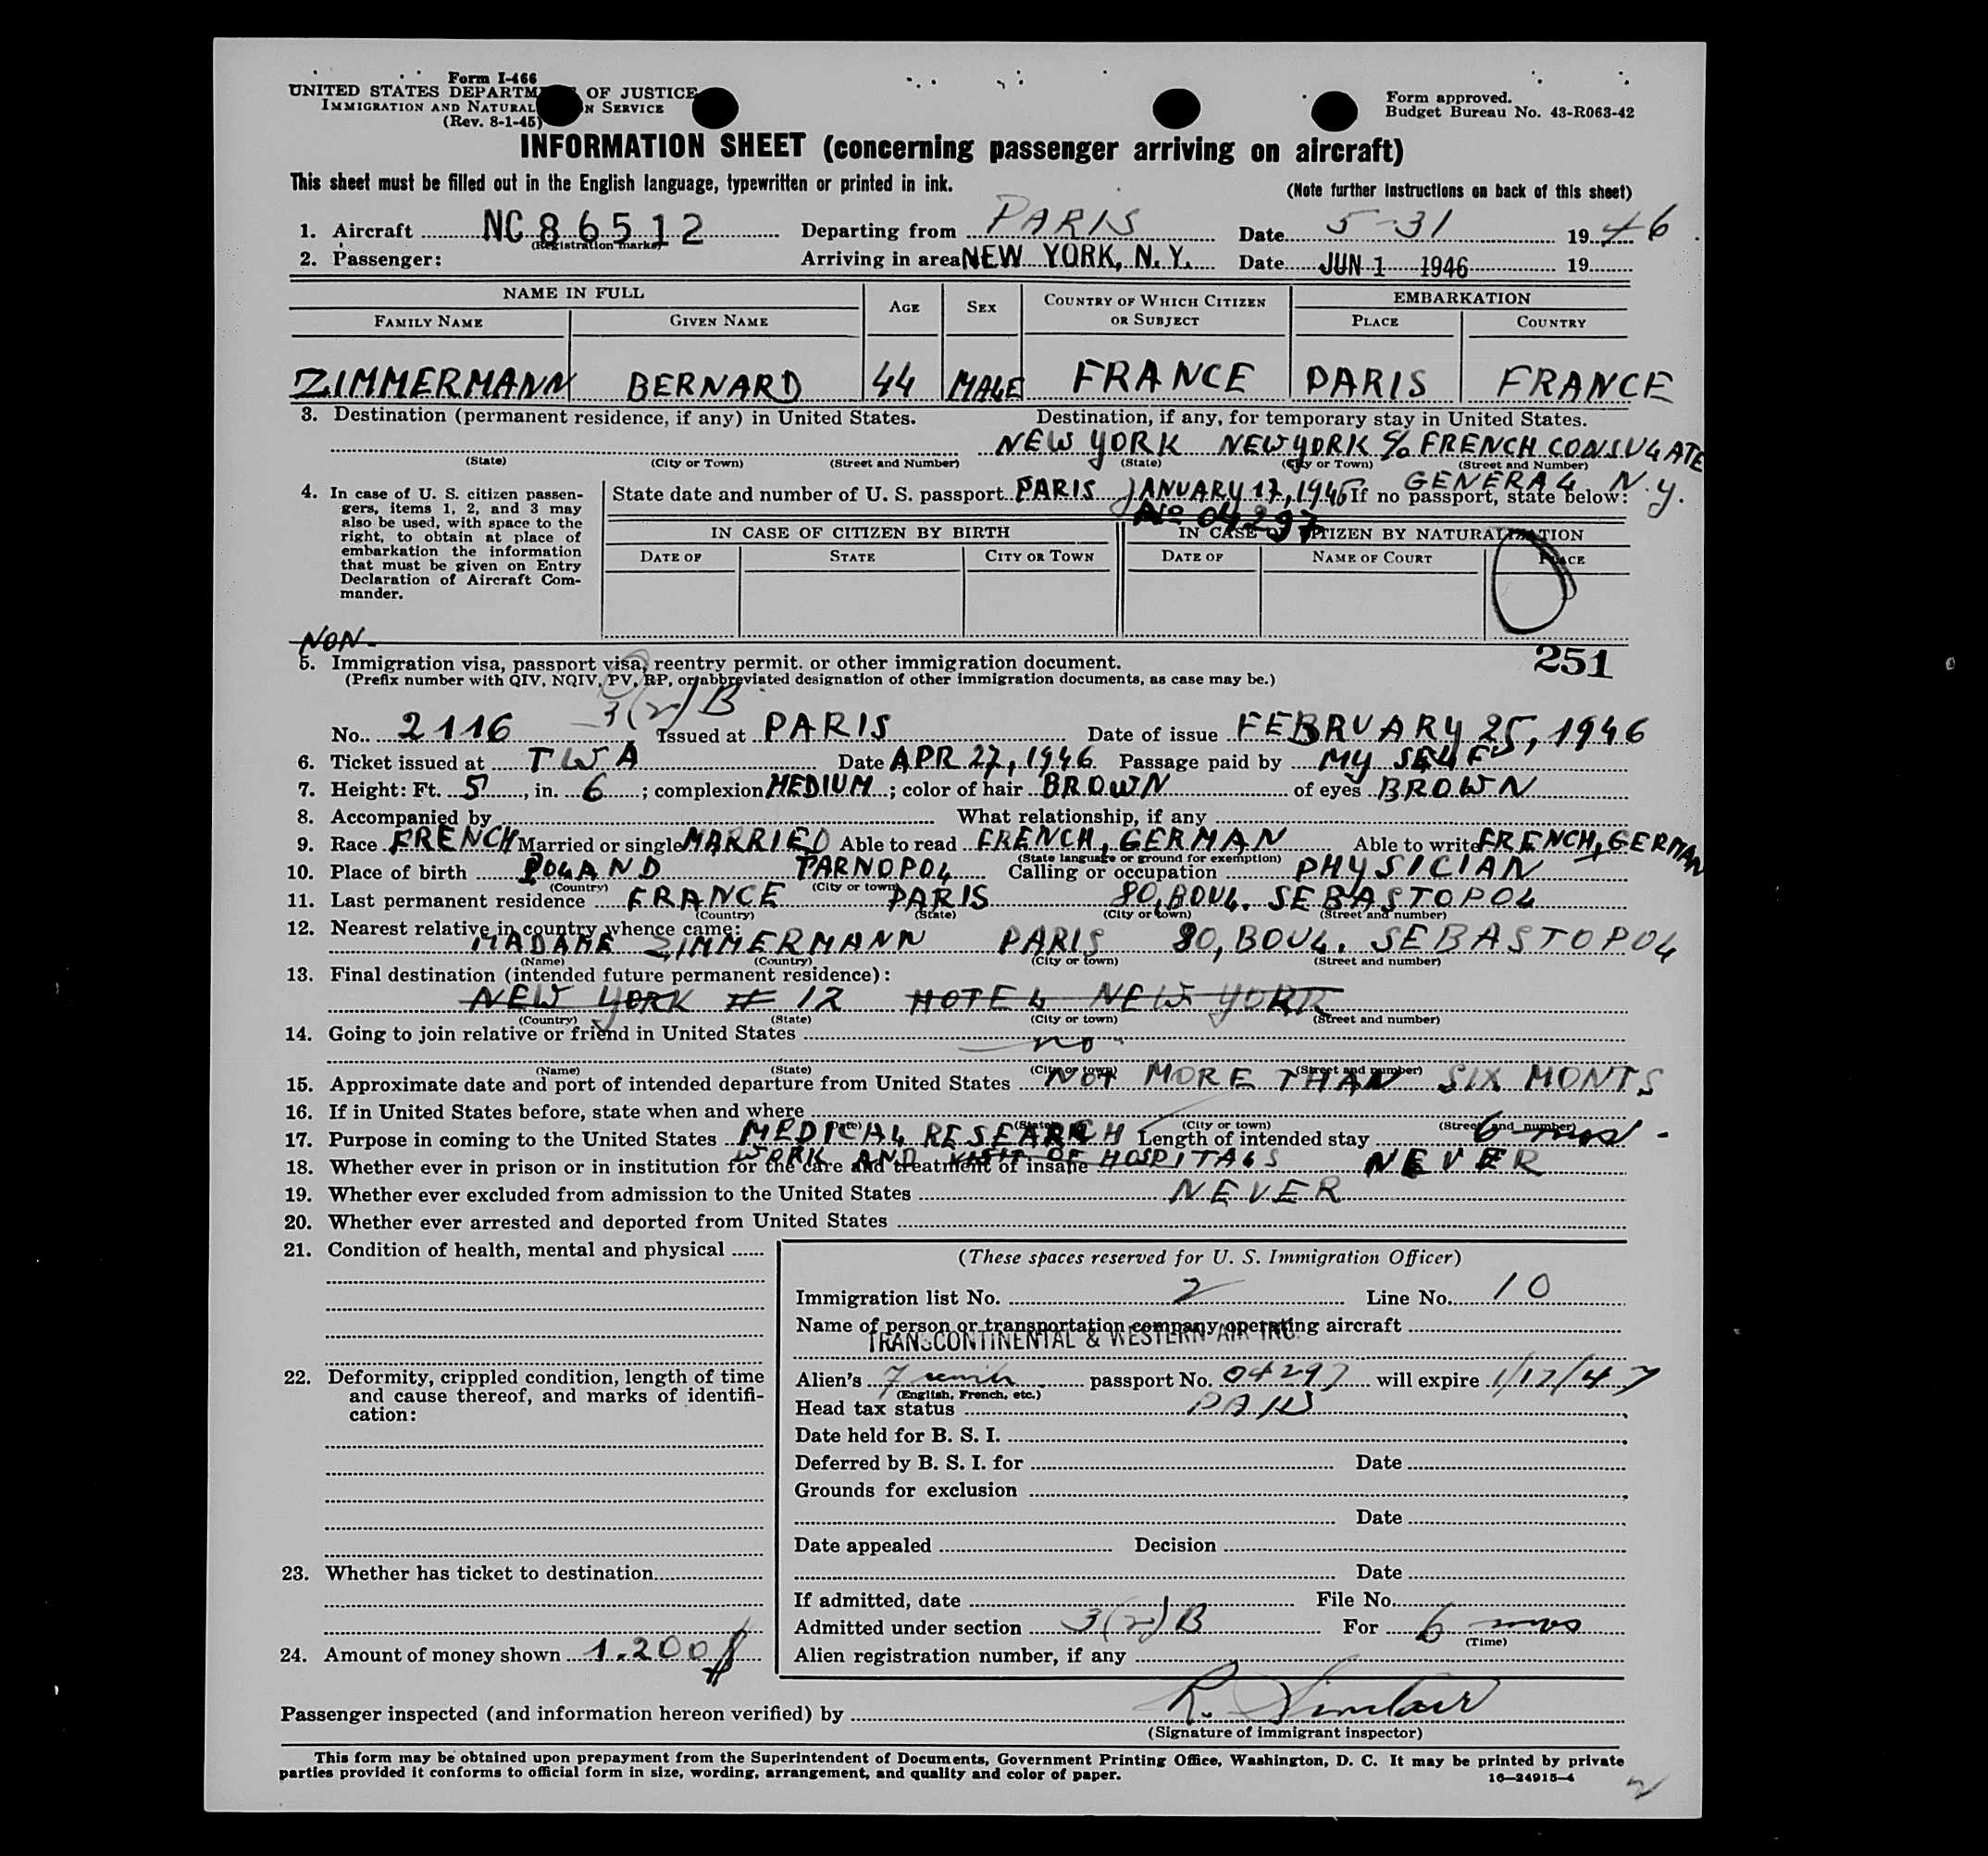 Form I-466
UNITED STATES DEPARTM OF JUSTICE
IMMIGRATION AND NATURAL N SERVICE
(Rev. 8-1-45)
Form approved.
Budget Bureau No. 43-R063-42
INFORMATION SHEET (concerning passenger arriving on aircraft)
This sheet must be filled out in the English language, typewritten or printed in ink.
(Note further instructions on back of this sheet)
1. Aircraft NC 86512 Departing from PARIS Date 5-31 1946
(Registration marks)
2. Passenger: Arriving in area NEW YORK, N. Y. Date JUN 1 1946 19
NAME IN FULL AGE SEX COUNTRY OF WHICH CITIZEN OR SUBJECT EMBARKATION
FAMILY NAME GIVEN NAME PLACE COUNTRY
ZIMMERMANN BERNARD 44 MALE FRANCE PARIS FRANCE
3. Destination (permanent residence, if any) in United States. Destination, if any, for temporary stay in United States.
NEW YORK NEW YORK c/o FRENCH CONSULATE
(State) (City or Town) (Street and Number) (State) (City or Town) (Street and Number)
GENERAL N.Y.
4. In case of U. S. citizen passengers, items 1, 2, and 3 may also be used, with space to the right, to obtain at place of embarkation the information that must be given on Entry Declaration of Aircraft Commander.
State date and number of U. S. passport PARIS JANUARY 17, 1946 If no passport, state below:
No 04297
IN CASE OF CITIZEN BY BIRTH IN CASE OF CITIZEN BY NATURALIZATION
DATE OF STATE CITY OR TOWN DATE OF NAME OF COURT PLACE
NON-
251
5. Immigration visa, passport visa, reentry permit. or other immigration document.
(Prefix number with QIV, NQIV, PV, RP, or abbreviated designation of other immigration documents, as case may be.)
3(2)B
No. 2116 Issued at PARIS Date of issue FEBRUARY 25, 1946
6. Ticket issued at TWA Date APR 27, 1946 Passage paid by MY SELF
7. Height: Ft. 5, in. 6; complexion MEDIUM; color of hair BROWN of eyes BROWN
8. Accompanied by What relationship, if any
9. Race FRENCH Married or single MARRIED Able to read FRENCH, GERMAN Able to write FRENCH, GERMAN
(State language or ground for exemption)
10. Place of birth POLAND TARNOPOL Calling or occupation PHYSICIAN
(Country) (City or town)
11. Last permanent residence FRANCE PARIS 80, BOUL. SEBASTOPOL
(Country) (State) (City or town) (Street and number)
12. Nearest relative in country whence came:
MADAME ZIMMERMANN PARIS 80, BOUL. SEBASTOPOL
(Name) (Country) (City or town) (Street and number)
13. Final destination (intended future permanent residence):
NEW YORK # 12 HOTEL NEW YORK
(Country) (State) (City or town) (Street and number)
14. Going to join relative or friend in United States
no
(Name) (State) (City or town) (Street and number)
15. Approximate date and port of intended departure from United States NOT MORE THAN SIX MONTS
16. If in United States before, state when and where
(Date) (State) (City or town) (Street and number)
17. Purpose in coming to the United States MEDICAL RESEARCH Length of intended stay 6 mos.
WORK AND VISIT OF HOSPITALS
18. Whether ever in prison or in institution for the care and treatment of insane NEVER
19. Whether ever excluded from admission to the United States NEVER
20. Whether ever arrested and deported from United States
21. Condition of health, mental and physical
22. Deformity, crippled condition, length of time and cause thereof, and marks of identification:
23. Whether has ticket to destination
24. Amount of money shown 1.200 $
(These spaces reserved for U. S. Immigration Officer)
Immigration list No. 2 Line No. 10
Name of person or transportation company operating aircraft
TRANSCONTINENTAL & WESTERN AIR INC.
Alien's passport No. 04297 will expire 1/17/47
(English, French, etc.)
Head tax status PAID
Date held for B. S. I.
Deferred by B. S. I. for Date
Grounds for exclusion
Date
Date appealed Decision
Date
If admitted, date File No.
Admitted under section 3(2)B For 6 mos
(Time)
Alien registration number, if any
Passenger inspected (and information hereon verified) by R. Sinclair
(Signature of immigrant inspector)
This form may be obtained upon prepayment from the Superintendent of Documents, Government Printing Office, Washington, D. C. It may be printed by private
parties provided it conforms to official form in size, wording, arrangement, and quality and color of paper.
16—24915-4